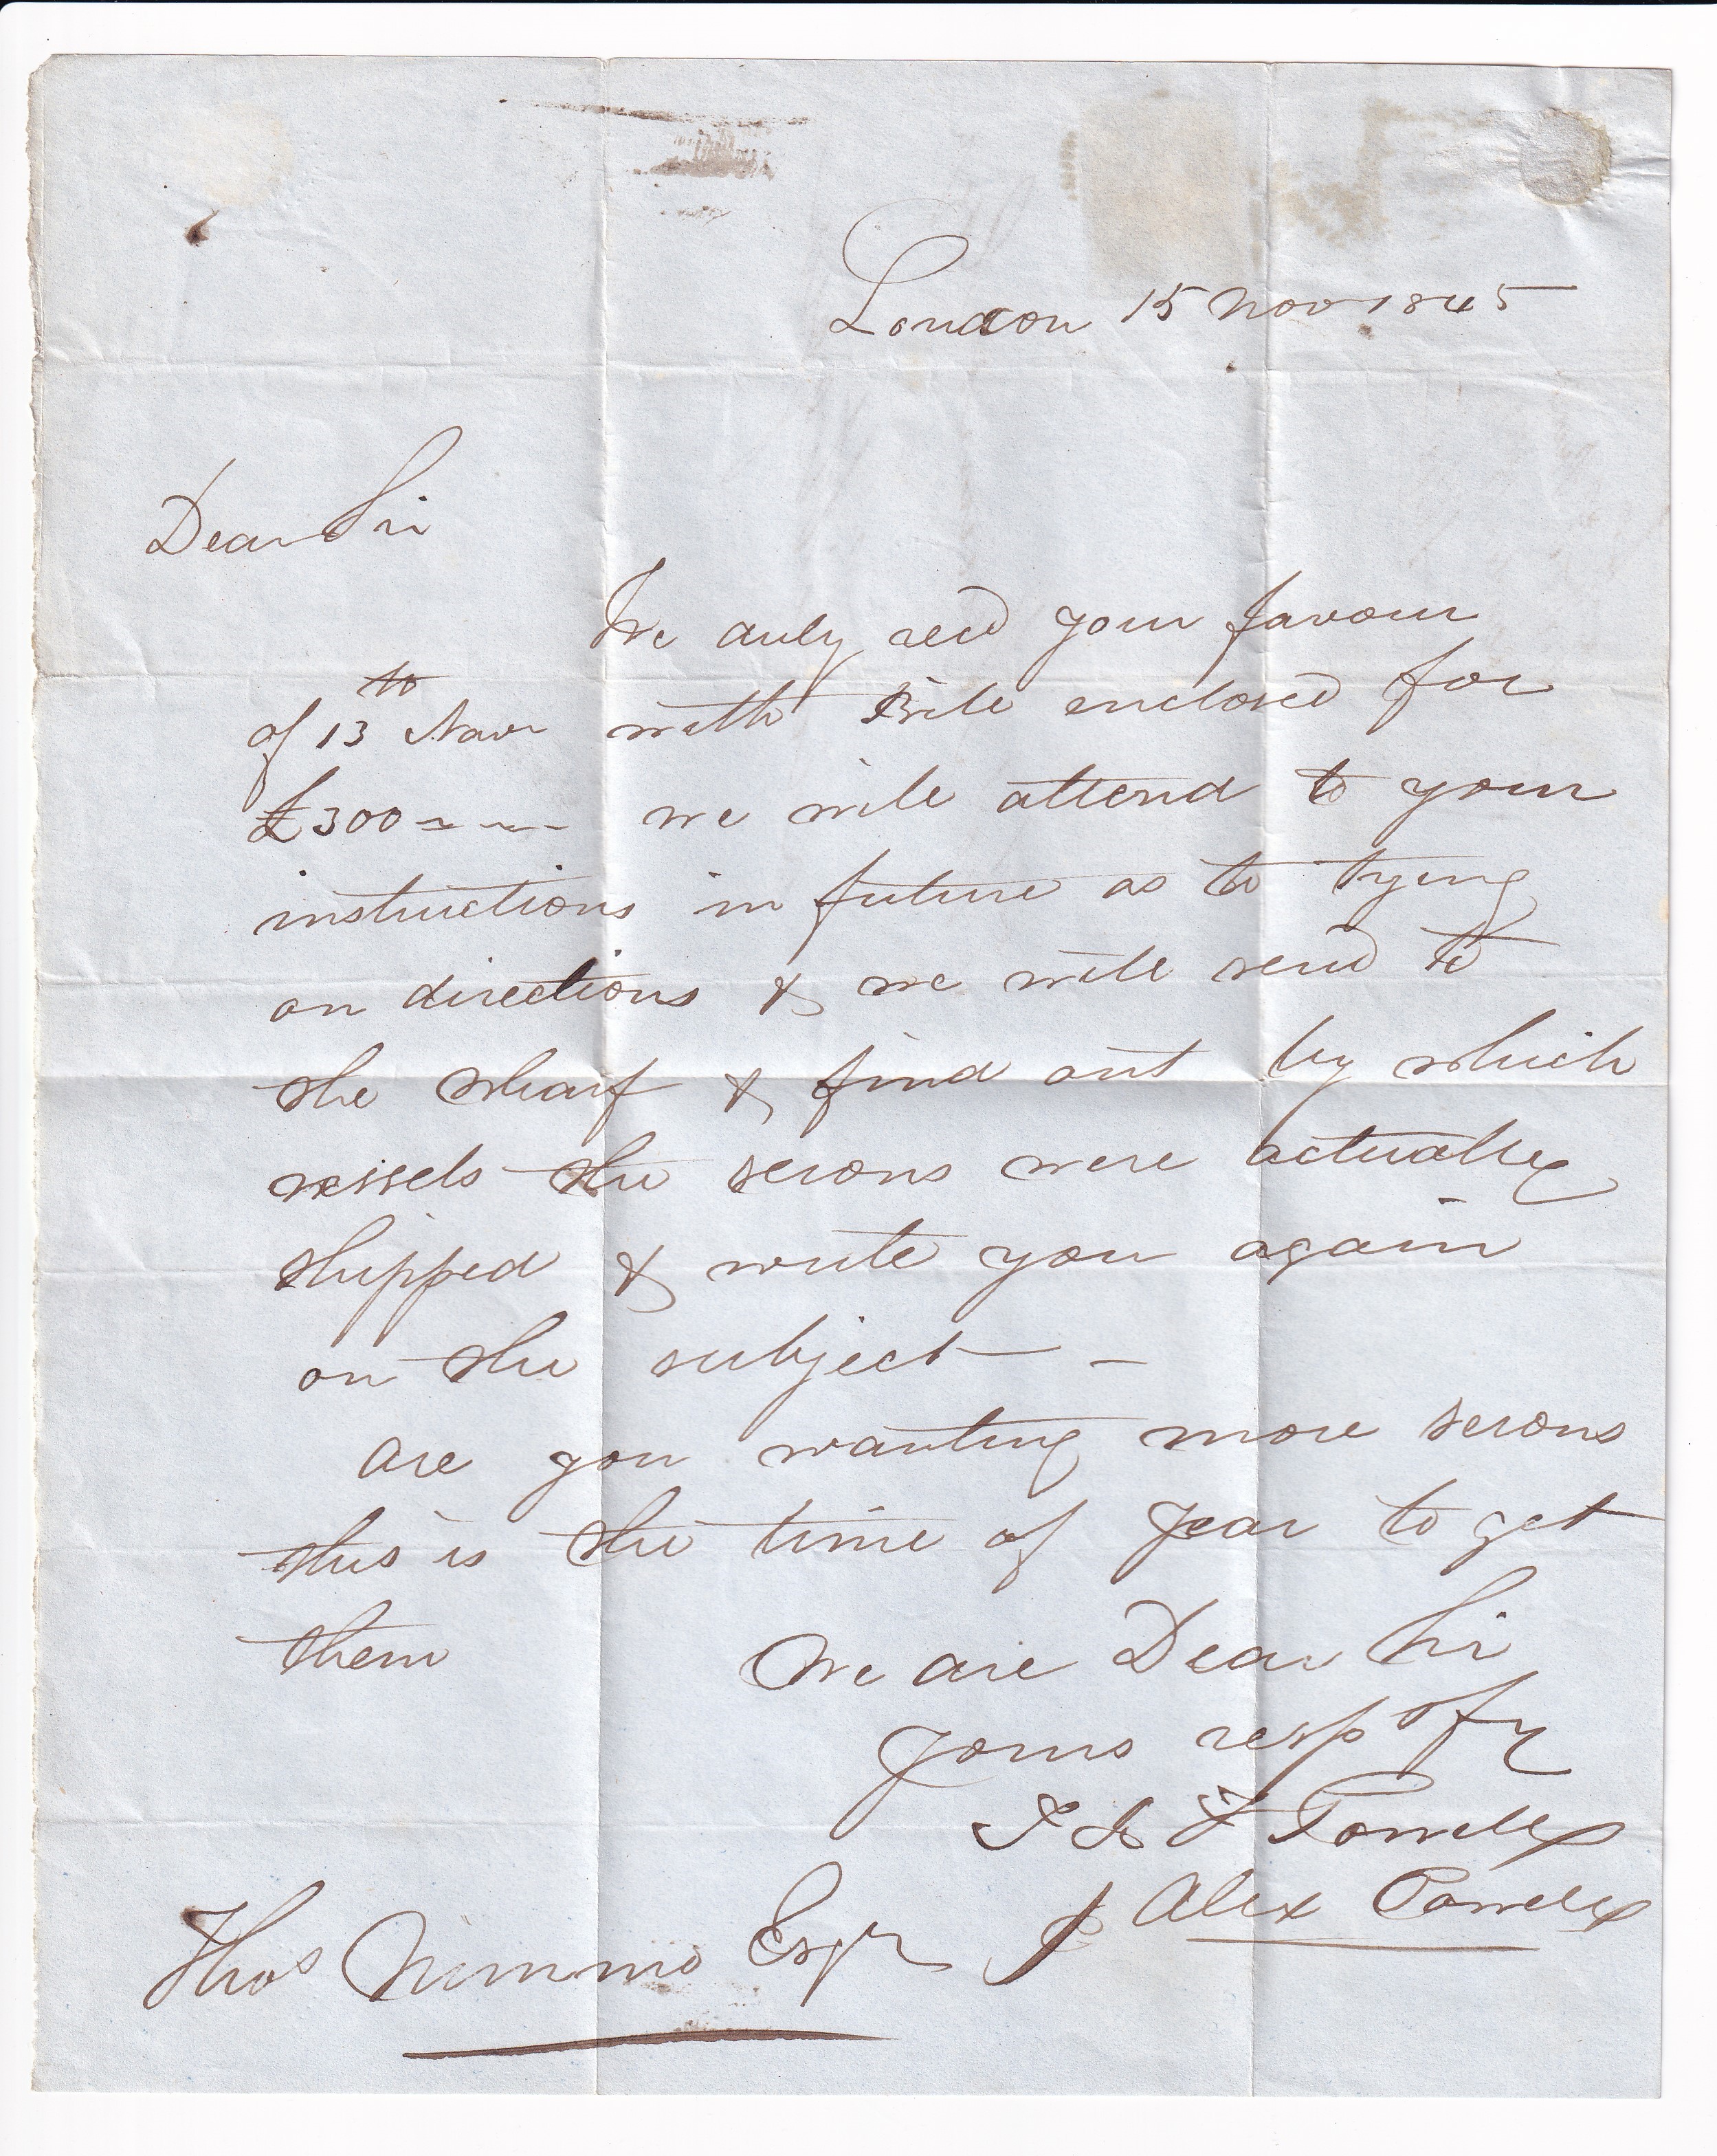 London 15 Nov 1845
Dear Sir
We duly recd your favour
of 13th Novr with Bill enclosed for
£300 - - - we will attend to your
instructions in future as to tying
on directions & we will send to
the wharf & find out by which
vessels the serons were actually
shipped & write you again
on the subject -
are you wanting more serons
this is the time of year to get
them
We are Dear Sir
Yours respfy
T & F Powell
p Alex Powell
Thos Nimmo Esqr